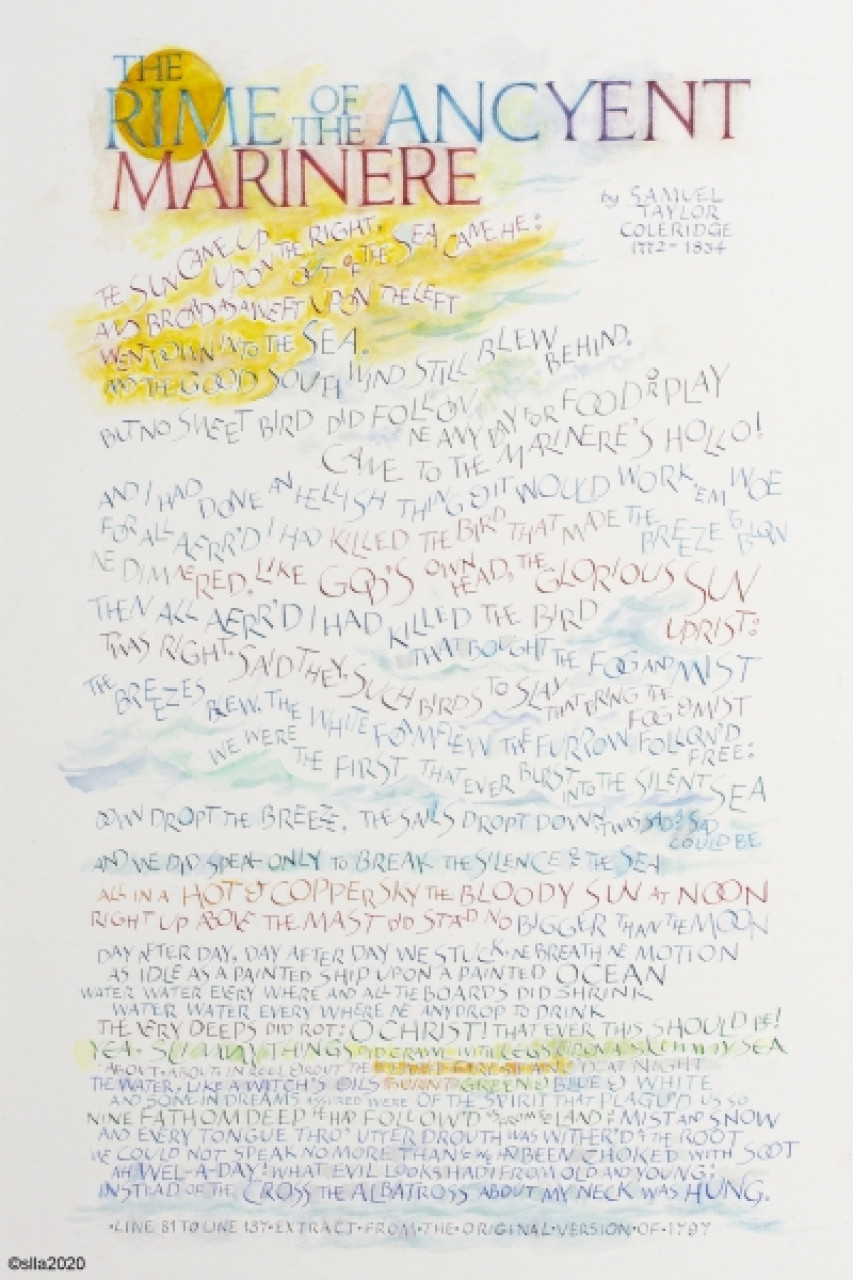 THE
RIME OF THE ANCYENT
MARINERE
by SAMUEL
TAYLOR
COLERIDGE
1772-1834
THE SUN CAME UP UPON THE RIGHT, OUT OF THE SEA CAME HE:
AND BROAD AS A WEFT UPON THE LEFT
WENT DOWN INTO THE SEA.
AND THE GOOD SOUTH WIND STILL BLEW BEHIND,
BUT NO SWEET BIRD DID FOLLOW
NE ANY DAY FOR FOOD OR PLAY
CAME TO THE MARINERE'S HOLLO!
AND I HAD DONE AN HELLISH THING & IT WOULD WORK 'EM WOE
FOR ALL AERR'D I HAD KILLED THE BIRD THAT MADE THE BREEZE TO BLOW
NE DIM NE RED, LIKE GOD'S OWN HEAD, THE GLORIOUS SUN
UPRIST:
THEN ALL AERR'D I HAD KILLED THE BIRD
THAT BOUGHT THE FOG AND MIST
TWAS RIGHT, SAID THEY, SUCH BIRDS TO SLAY
THAT BRING THE FOG & MIST
THE BREEZES BLEW, THE WHITE FOAM FLEW THE FURROW FOLLOW'D
FREE:
WE WERE THE FIRST THAT EVER BURST INTO THE SILENT SEA
DOWN DROPT THE BREEZE, THE SAILS DROPT DOWN, TWAS SAD AS SAD
COULD BE
AND WE DID SPEAK ONLY TO BREAK THE SILENCE OF THE SEA
ALL IN A HOT & COPPER SKY THE BLOODY SUN AT NOON
RIGHT UP ABOVE THE MAST DID STAND NO BIGGER THAN THE MOON
DAY AFTER DAY, DAY AFTER DAY WE STUCK, NE BREATH NE MOTION
AS IDLE AS A PAINTED SHIP UPON A PAINTED OCEAN
WATER WATER EVERY WHERE AND ALL THE BOARDS DID SHRINK
WATER WATER EVERY WHERE NE ANY DROP TO DRINK
THE VERY DEEPS DID ROT: O CHRIST! THAT EVER THIS SHOULD BE!
YEA, SLIMY THINGS DID CRAWL WITH LEGS UPON A SLIMY SEA
ABOUT, ABOUT IN REEL & ROUT THE DEATH-FIRES DANC'D AT NIGHT
THE WATER, LIKE A WITCH'S OILS BURNT GREEN & BLUE & WHITE
AND SOME IN DREAMS ASSURED WERE OF THE SPIRIT THAT PLAGU'D US SO
NINE FATHOM DEEP HE HAD FOLLOW'D US FROM THE LAND OF MIST AND SNOW
AND EVERY TONGUE THRO' UTTER DROUTH WAS WITHER'D AT THE ROOT
WE COULD NOT SPEAK NO MORE THAN IF WE HAD BEEN CHOKED WITH SOOT
AH WEL-A-DAY! WHAT EVIL LOOKS HAD I FROM OLD AND YOUNG;
INSTEAD OF THE CROSS THE ALBATROSS ABOUT MY NECK WAS HUNG.
·LINE 81 TO LINE 137·EXTRACT·FROM·THE·ORIGINAL·VERSION·OF·1797
©slla2020